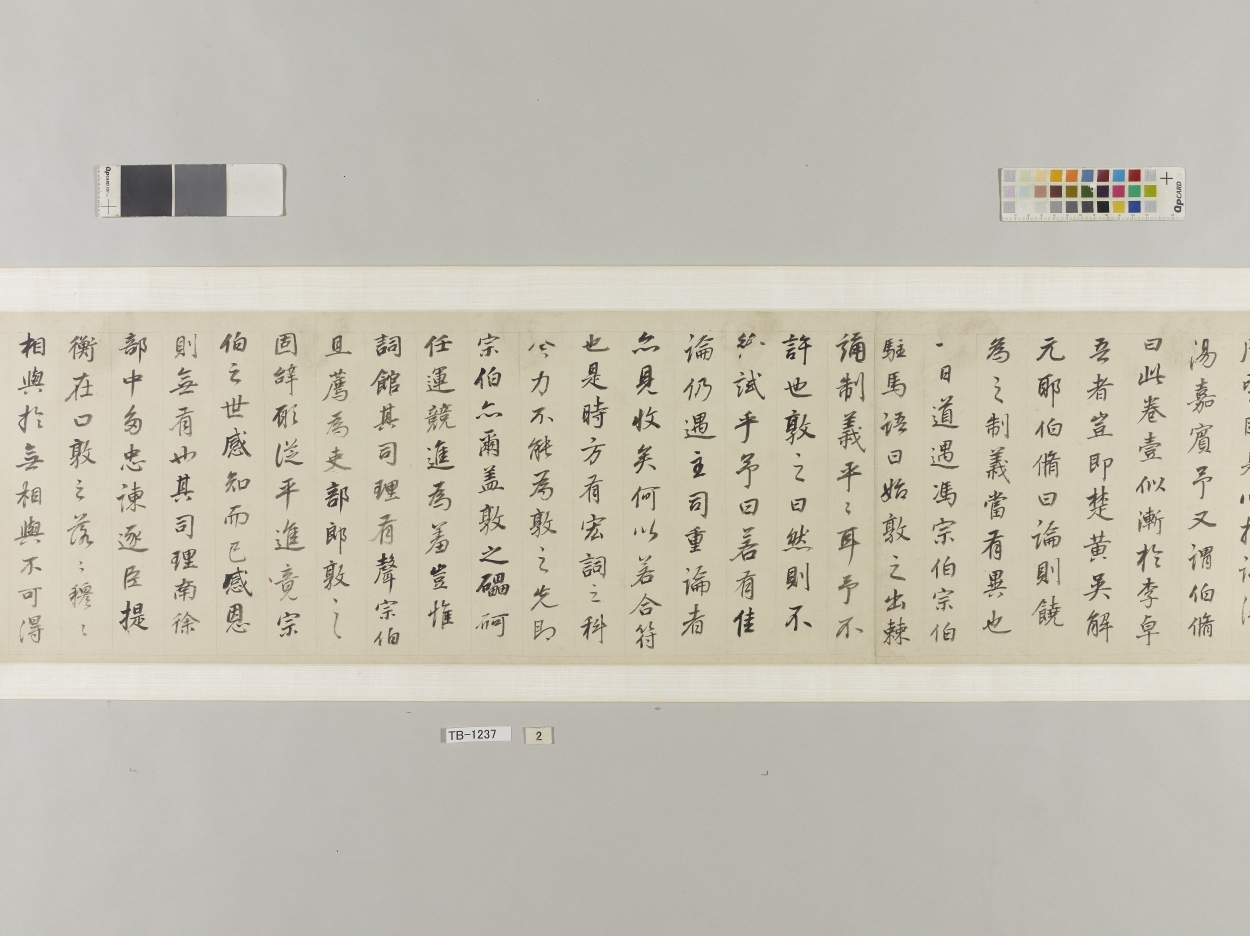 湯嘉賓予又謂伯脩
曰此卷壹似漸於李卓
吾者豈即楚黃吳解
元耶伯脩曰論則饒
為之制義當有異也
一日道遇馮宗伯宗伯
駐馬語曰始敦之出棘
誦制義平〻耳予不
許也敦之曰然則不
試乎予曰若有佳
論仍遇主司重論者
亦見收矣何以若合符
也是時方有宏詞之科
力不能為敦之先即
宗伯亦爾蓋敦之礧砢
任運競進為羞豈惟
詞館其司理有聲宗伯
且薦為吏部郎敦之
固辭願從平進竟宗
伯之世感知而已感恩
則無有也其司理南徐
部中多忠諫逐臣提
衡在口敦之落〻穆〻
相與於無相與不可得
TB-1237
2
QPCARD
QPCARD